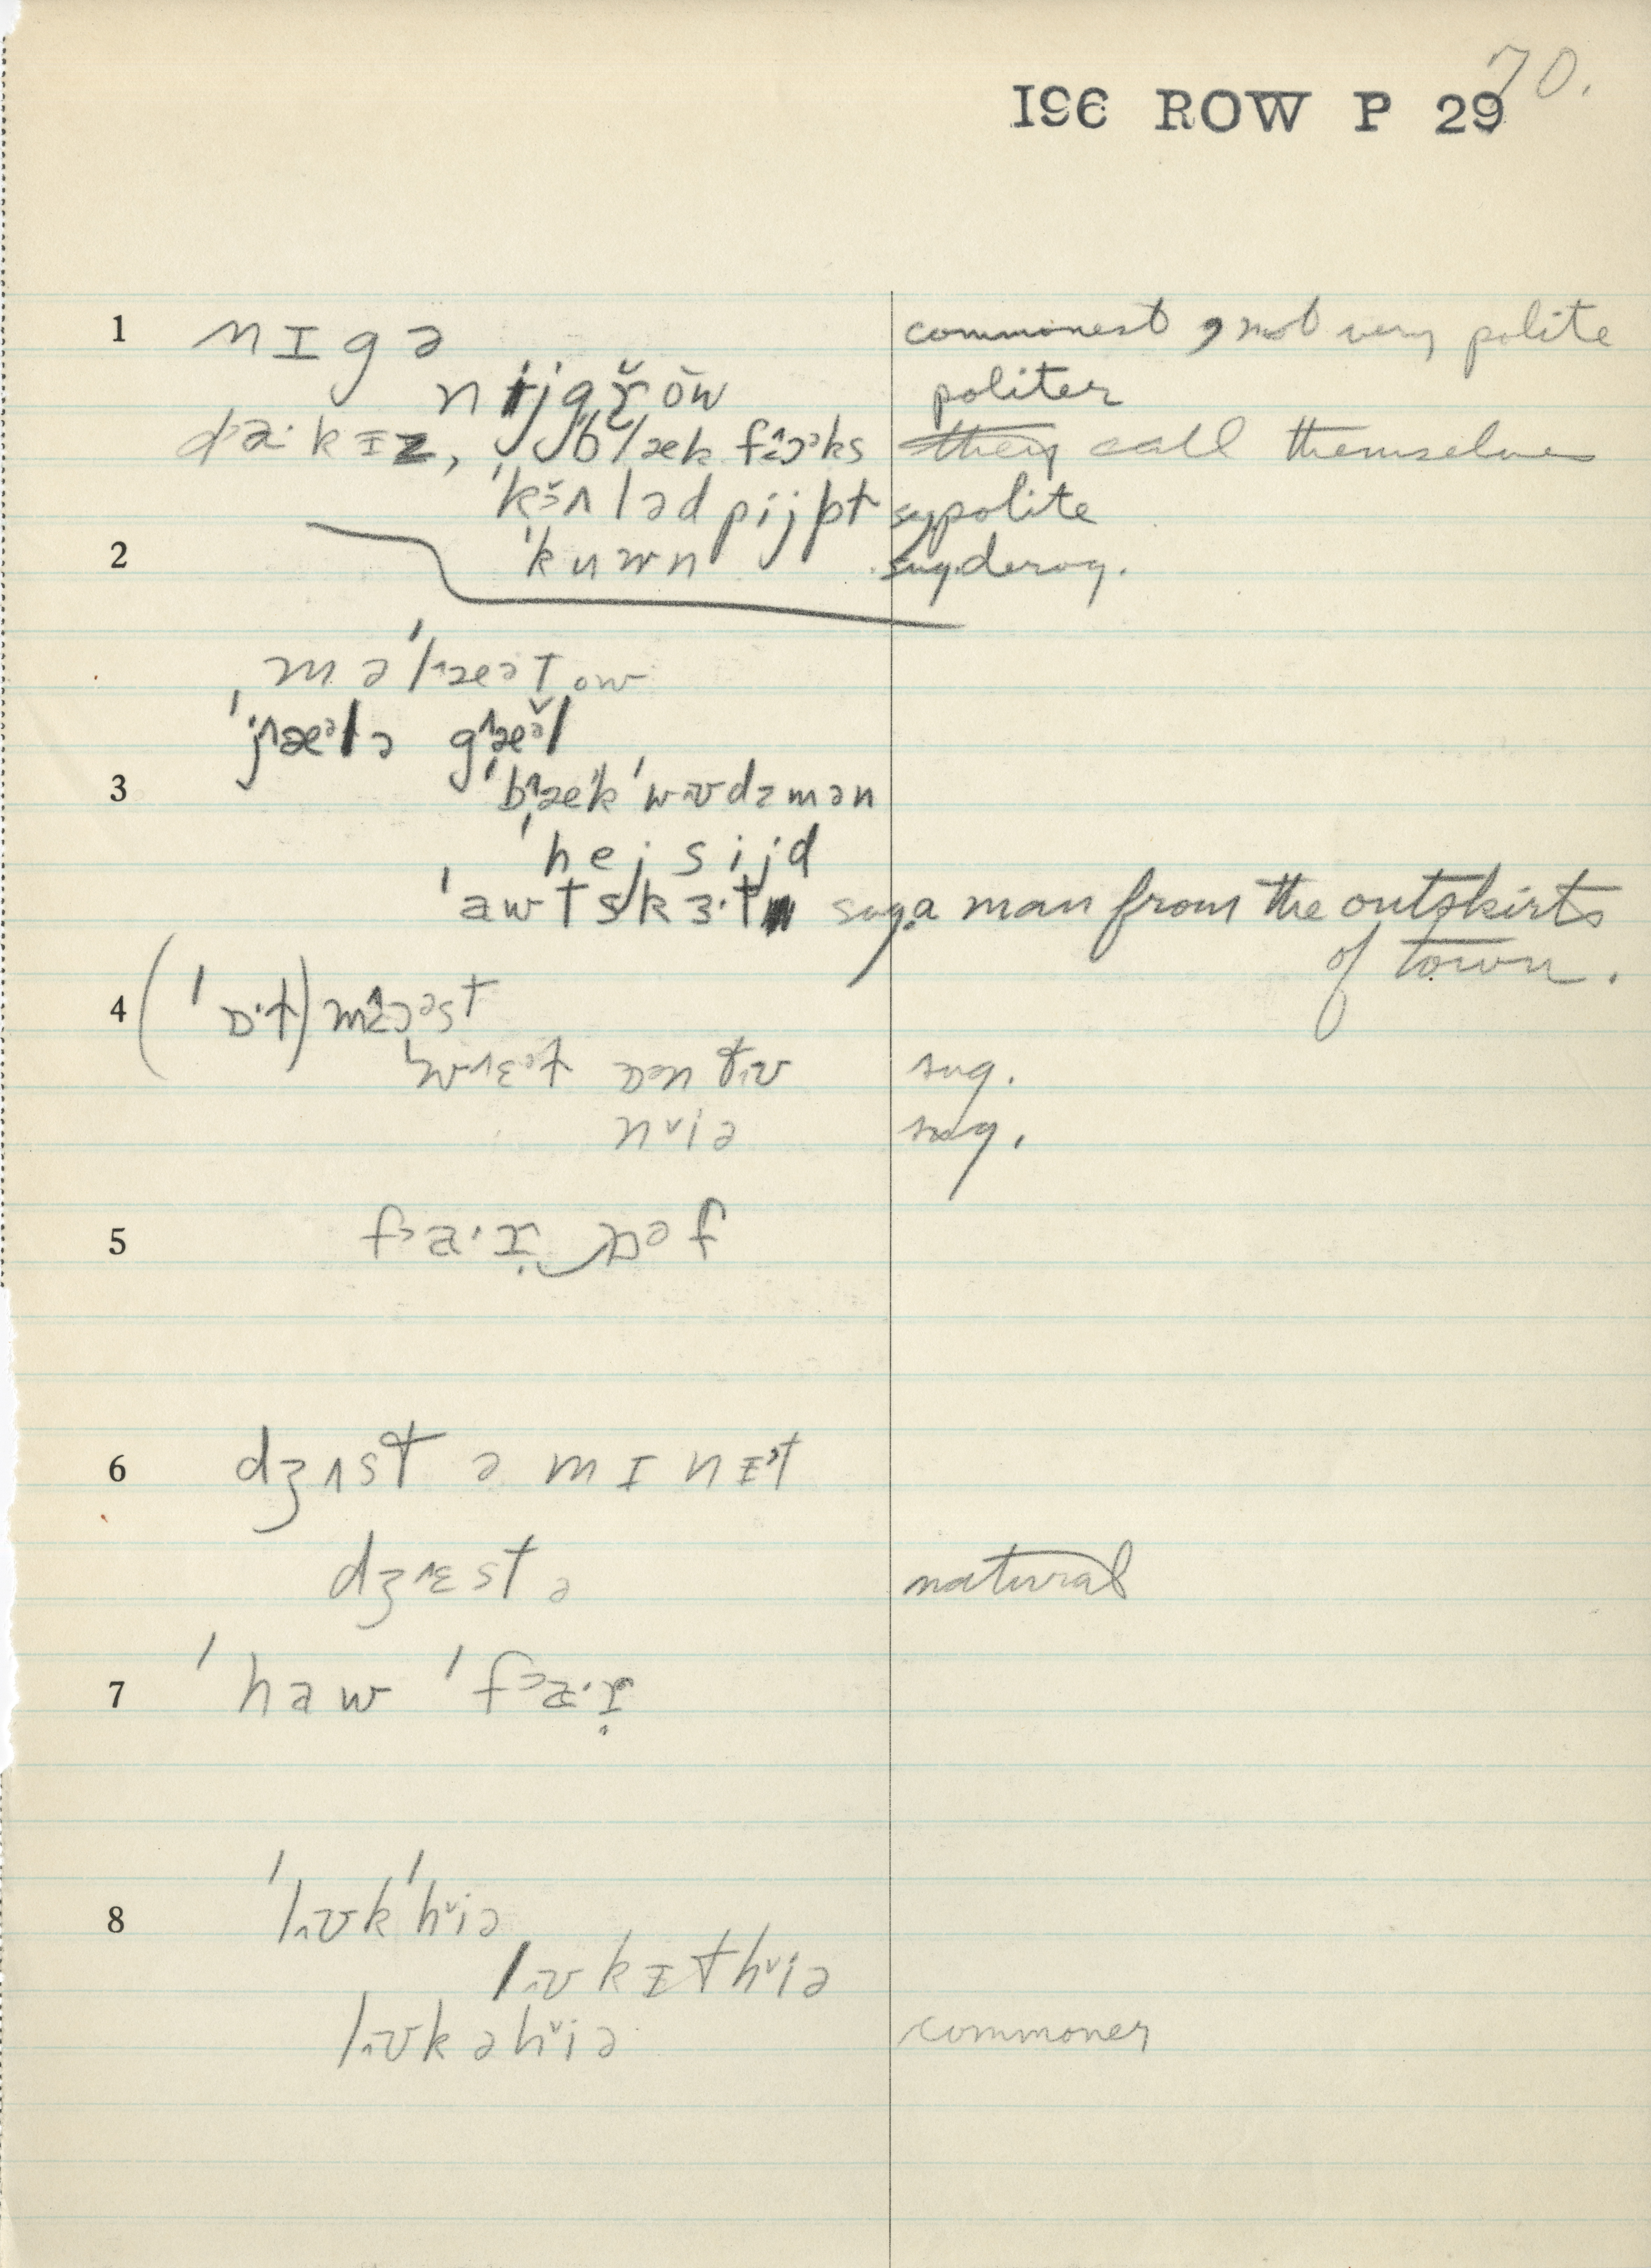 70.
196 ROW P 29
1 nɪgə commonest, not very polite
nijgr̆ōw politer
da·kɪz, ˈblæk fɔks they call themselves
ˈkʌləd pijpt sug polite
2 ˈkuwn sug. derog.
məˈlætow
ˈjælə gæl
3 ˈbækˈwʊdzmən
ˈhejsijd
ˈawtskɜ·t sug. a man from the outskirts
of town.
4 (ˈɒ·t) mɔəst
ɒn tʊ sug.
niə sug.
5 fa·r ɒəf
6 dʒʌst ə mɪnɪt
dʒɛst ə natural
7 ˈhaw ˈfa·r
8 ˈlʊkˈhiə
lʊkɪthiə
lʊkəhiə commoner